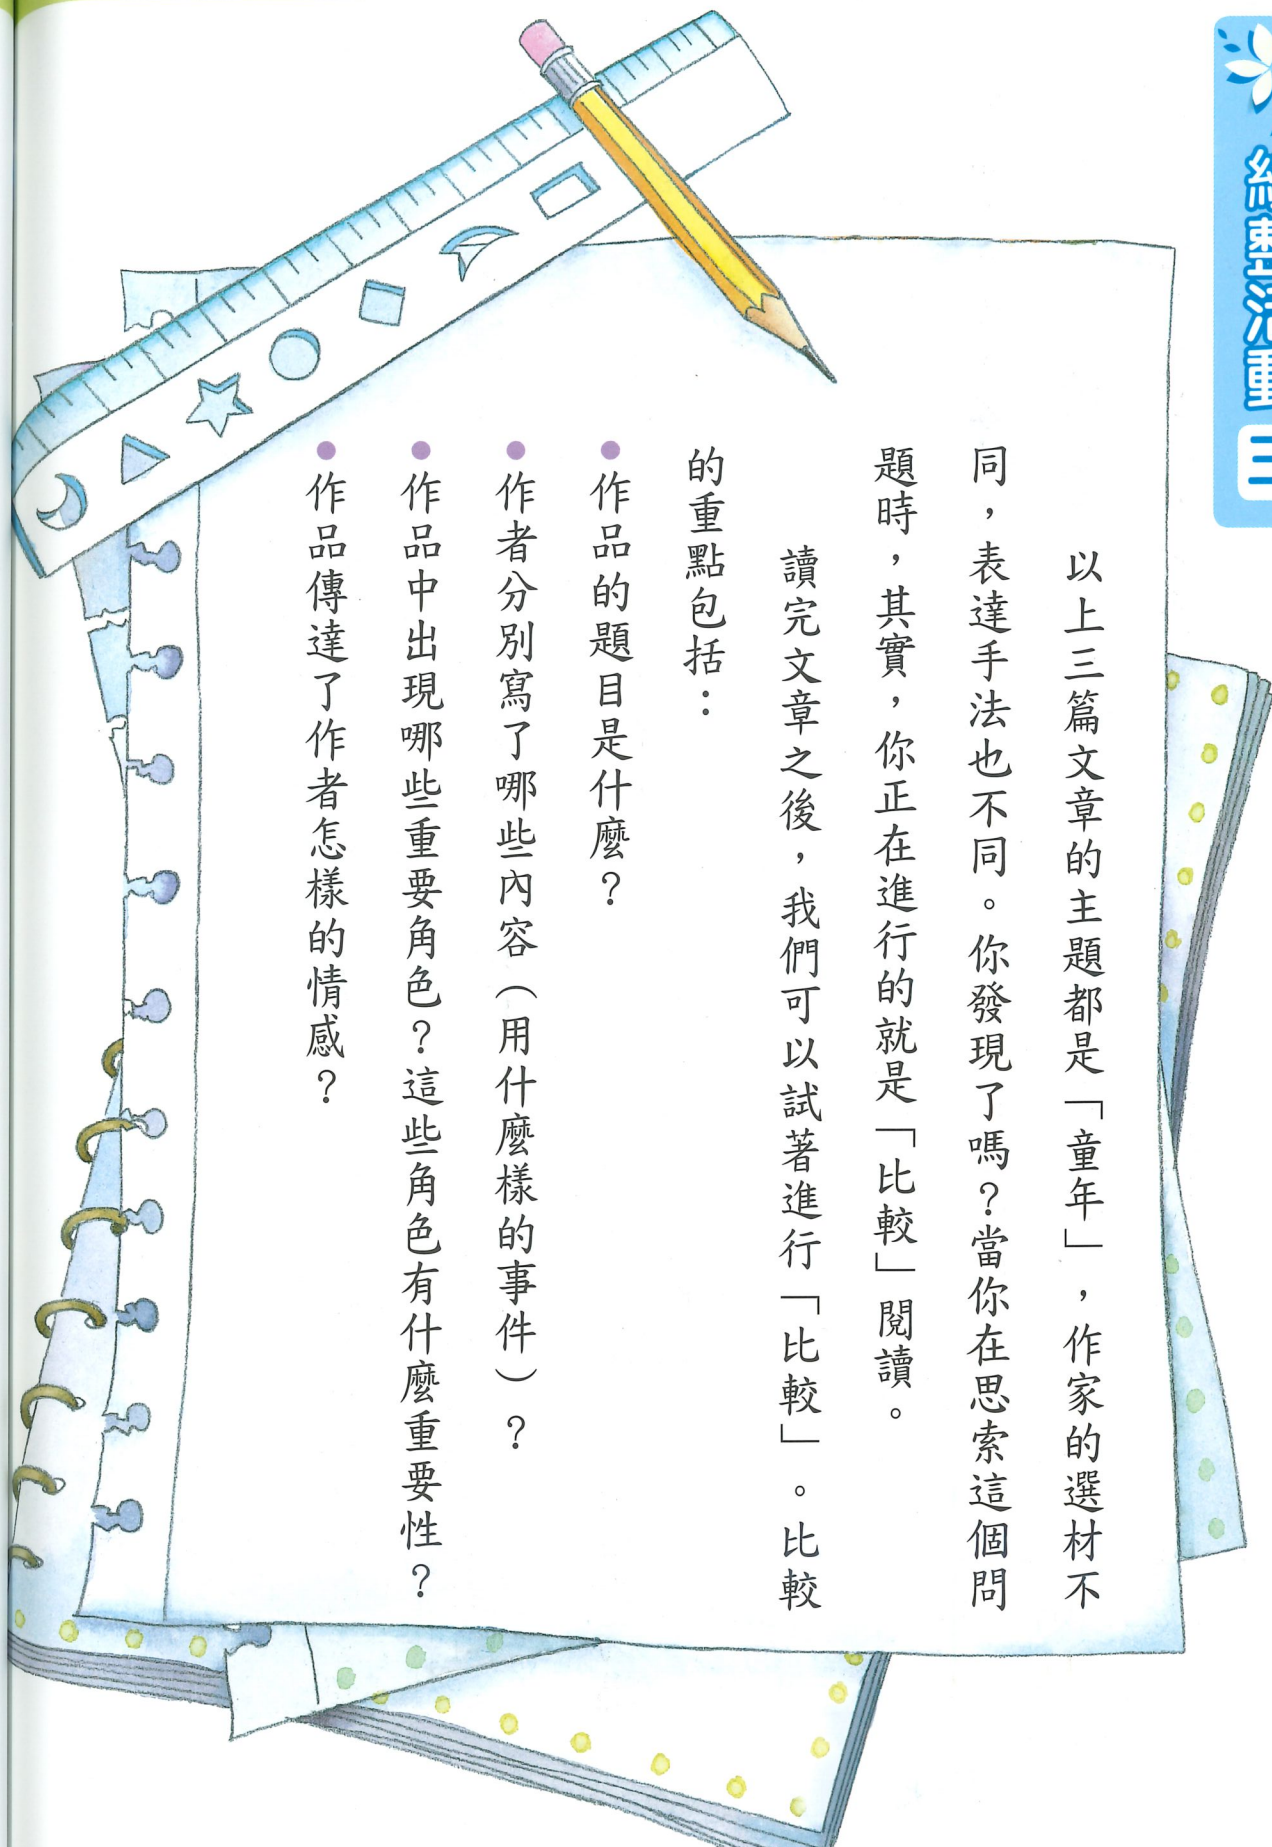 統整活動
以上三篇文章的主題都是「童年」，作家的選材不
同，表達手法也不同。你發現了嗎？當你在思索這個問
題時，其實，你正在進行的就是「比較」閱讀。
讀完文章之後，我們可以試著進行「比較」。比較
的重點包括：
●作品的題目是什麼？
●作者分別寫了哪些內容（用什麼樣的事件）？
●作品中出現哪些重要角色？這些角色有什麼重要性？
●作品傳達了作者怎樣的情感？